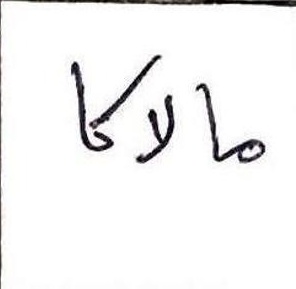 مالاکا